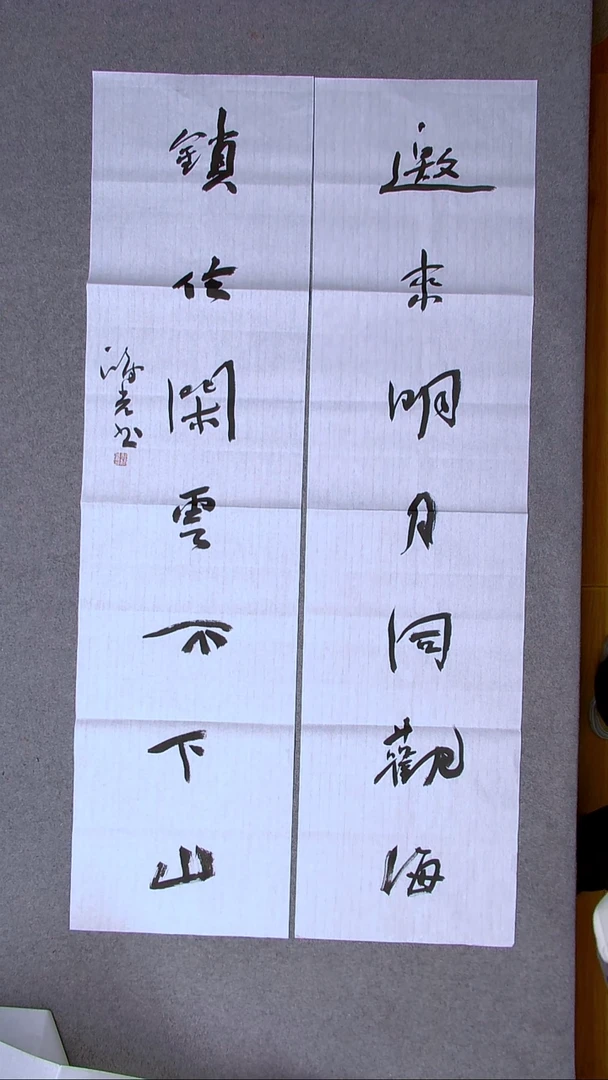 邀來明月同觀海
鎖住閑雲不下山